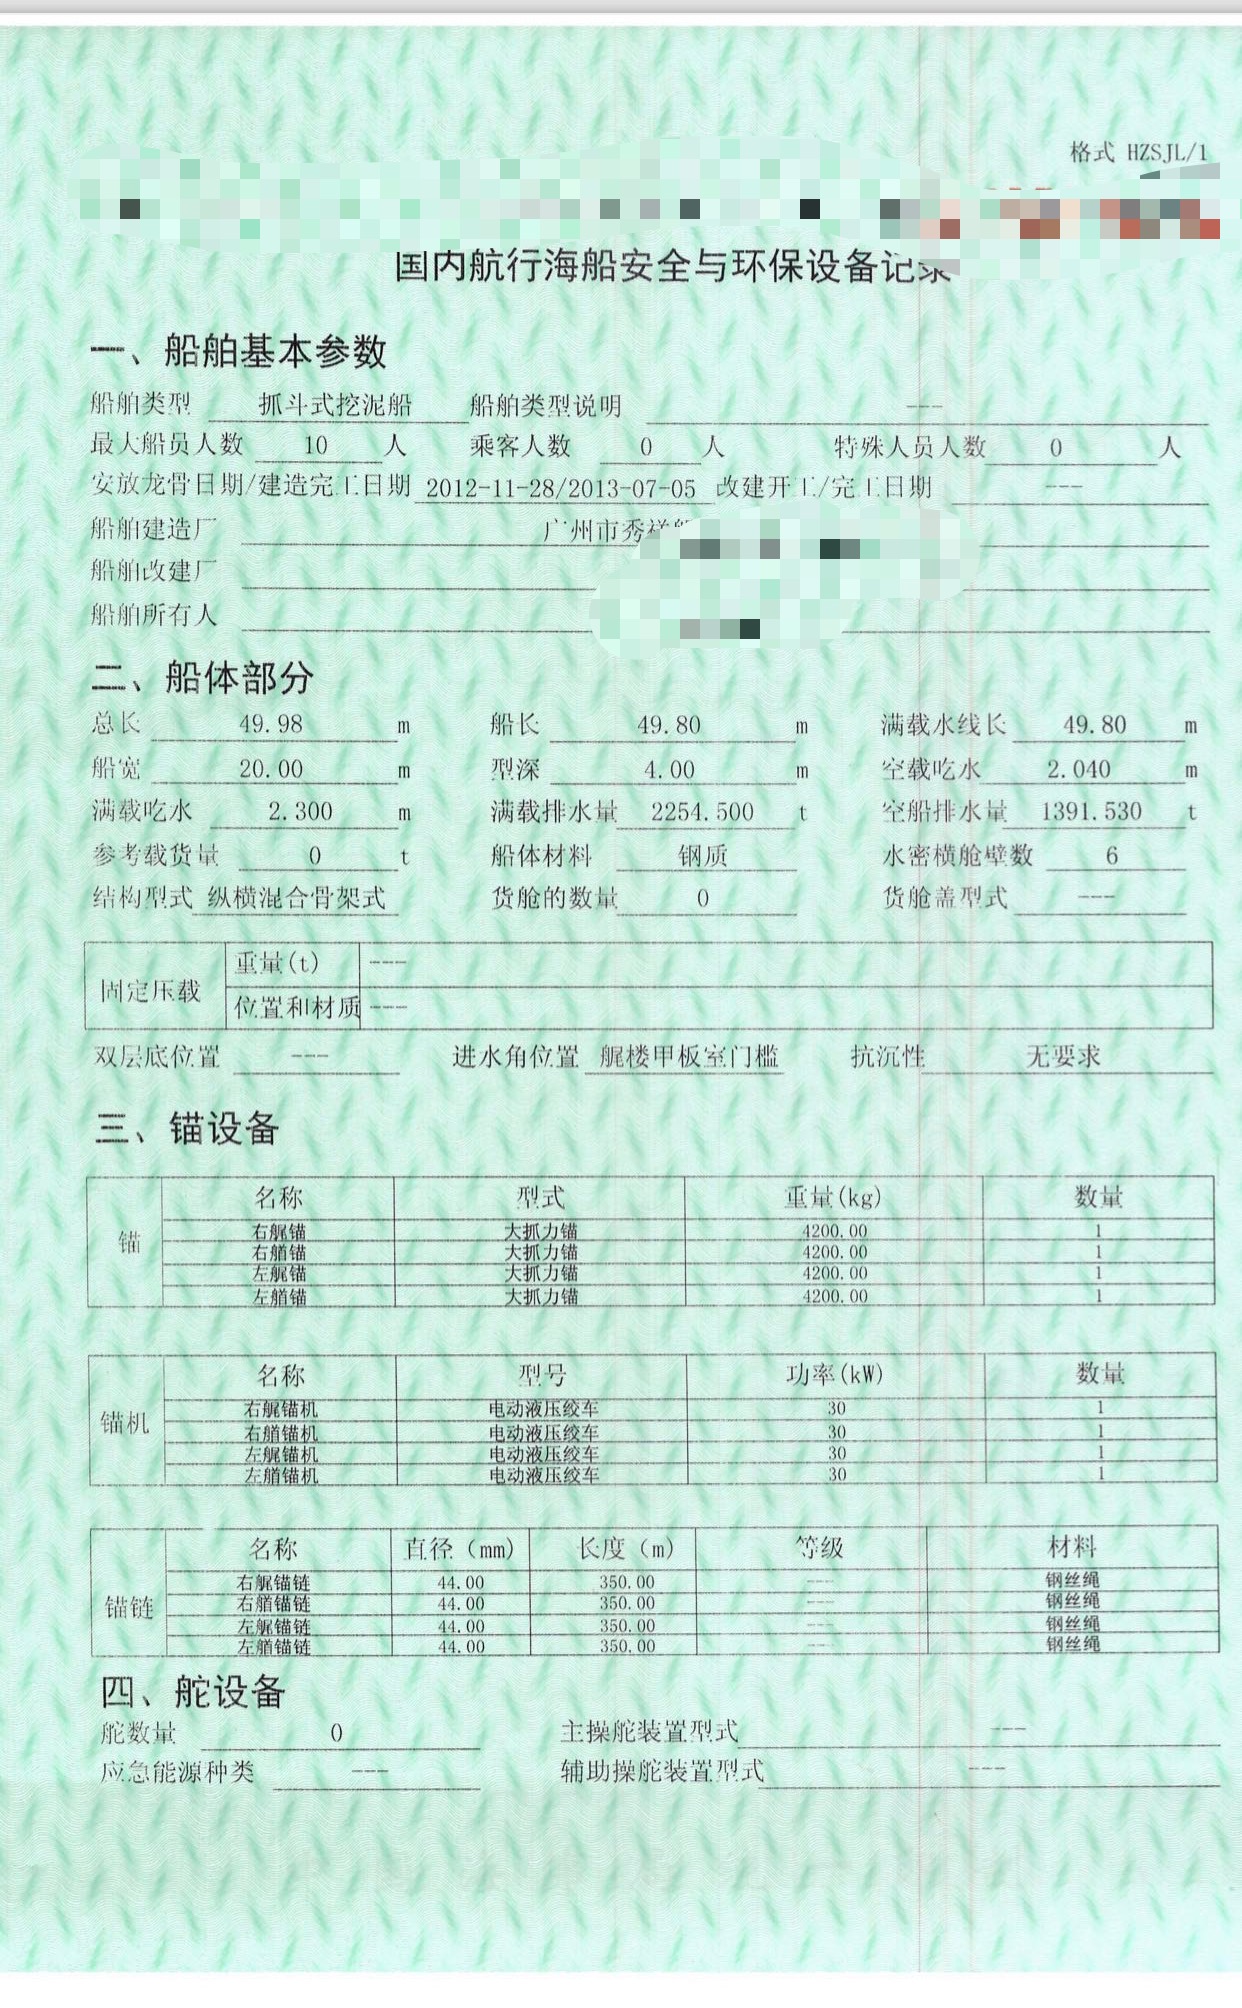 格式 HZSJL/1
国内航行海船安全与环保设备记录
一、船舶基本参数
船舶类型 抓斗式挖泥船 船舶类型说明 ---
最大船员人数 10 人 乘客人数 0 人 特殊人员人数 0 人
安放龙骨日期/建造完工日期 2012-11-28/2013-07-05 改建开工/完工日期 ---
船舶建造厂 广州市秀祥
船舶改建厂
船舶所有人
二、船体部分
总长 49.98 m 船长 49.80 m 满载水线长 49.80 m
船宽 20.00 m 型深 4.00 m 空载吃水 2.040 m
满载吃水 2.300 m 满载排水量 2254.500 t 空船排水量 1391.530 t
参考载货量 0 t 船体材料 钢质 水密横舱壁数 6
结构型式 纵横混合骨架式 货舱的数量 0 货舱盖型式 ---
固定压载 重量(t) ---
位置和材质 ---
双层底位置 --- 进水角位置 艉楼甲板室门槛 抗沉性 无要求
三、锚设备
锚 名称 型式 重量(kg) 数量
右艉锚 大抓力锚 4200.00 1
右艏锚 大抓力锚 4200.00 1
左艉锚 大抓力锚 4200.00 1
左艏锚 大抓力锚 4200.00 1
锚机 名称 型号 功率(kW) 数量
右艉锚机 电动液压绞车 30 1
右艏锚机 电动液压绞车 30 1
左艉锚机 电动液压绞车 30 1
左艏锚机 电动液压绞车 30 1
锚链 名称 直径（mm） 长度（m） 等级 材料
右艉锚链 44.00 350.00 --- 钢丝绳
右艏锚链 44.00 350.00 --- 钢丝绳
左艉锚链 44.00 350.00 --- 钢丝绳
左艏锚链 44.00 350.00 --- 钢丝绳
四、舵设备
舵数量 0 主操舵装置型式 ---
应急能源种类 --- 辅助操舵装置型式 ---